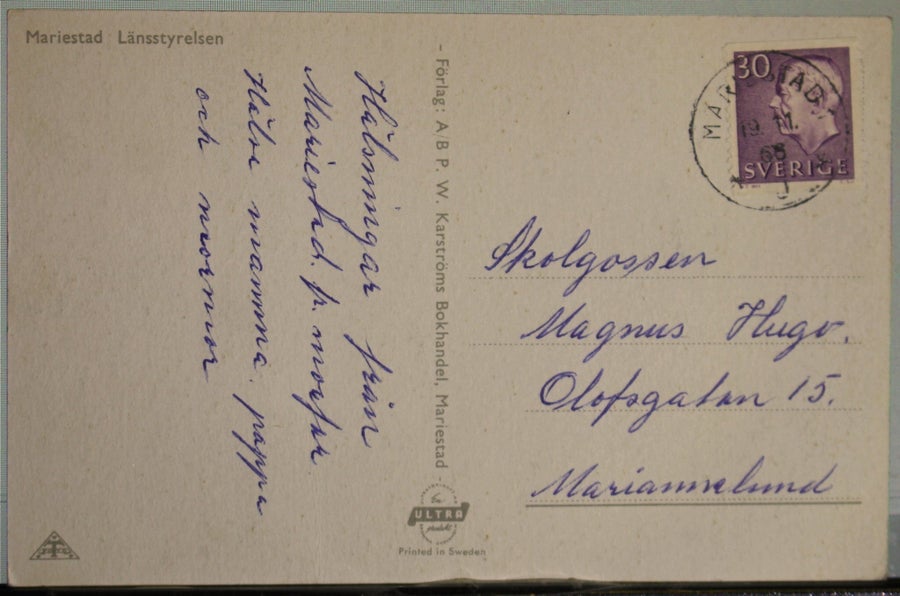 Mariestad Länsstyrelsen
Hälsningar från
Mariestad. fr. morfar
Hälsa mamma. pappa
och mormor
- Förlag: A/B P. W. Karströms Bokhandel, Mariestad -
En
ULTRA
produkt
Printed in Sweden
30
SVERIGE
MARIESTAD 1
19. 11.
65
Skolgossen
Magnus Hugo.
Olofsgatan 15.
Mariannelund